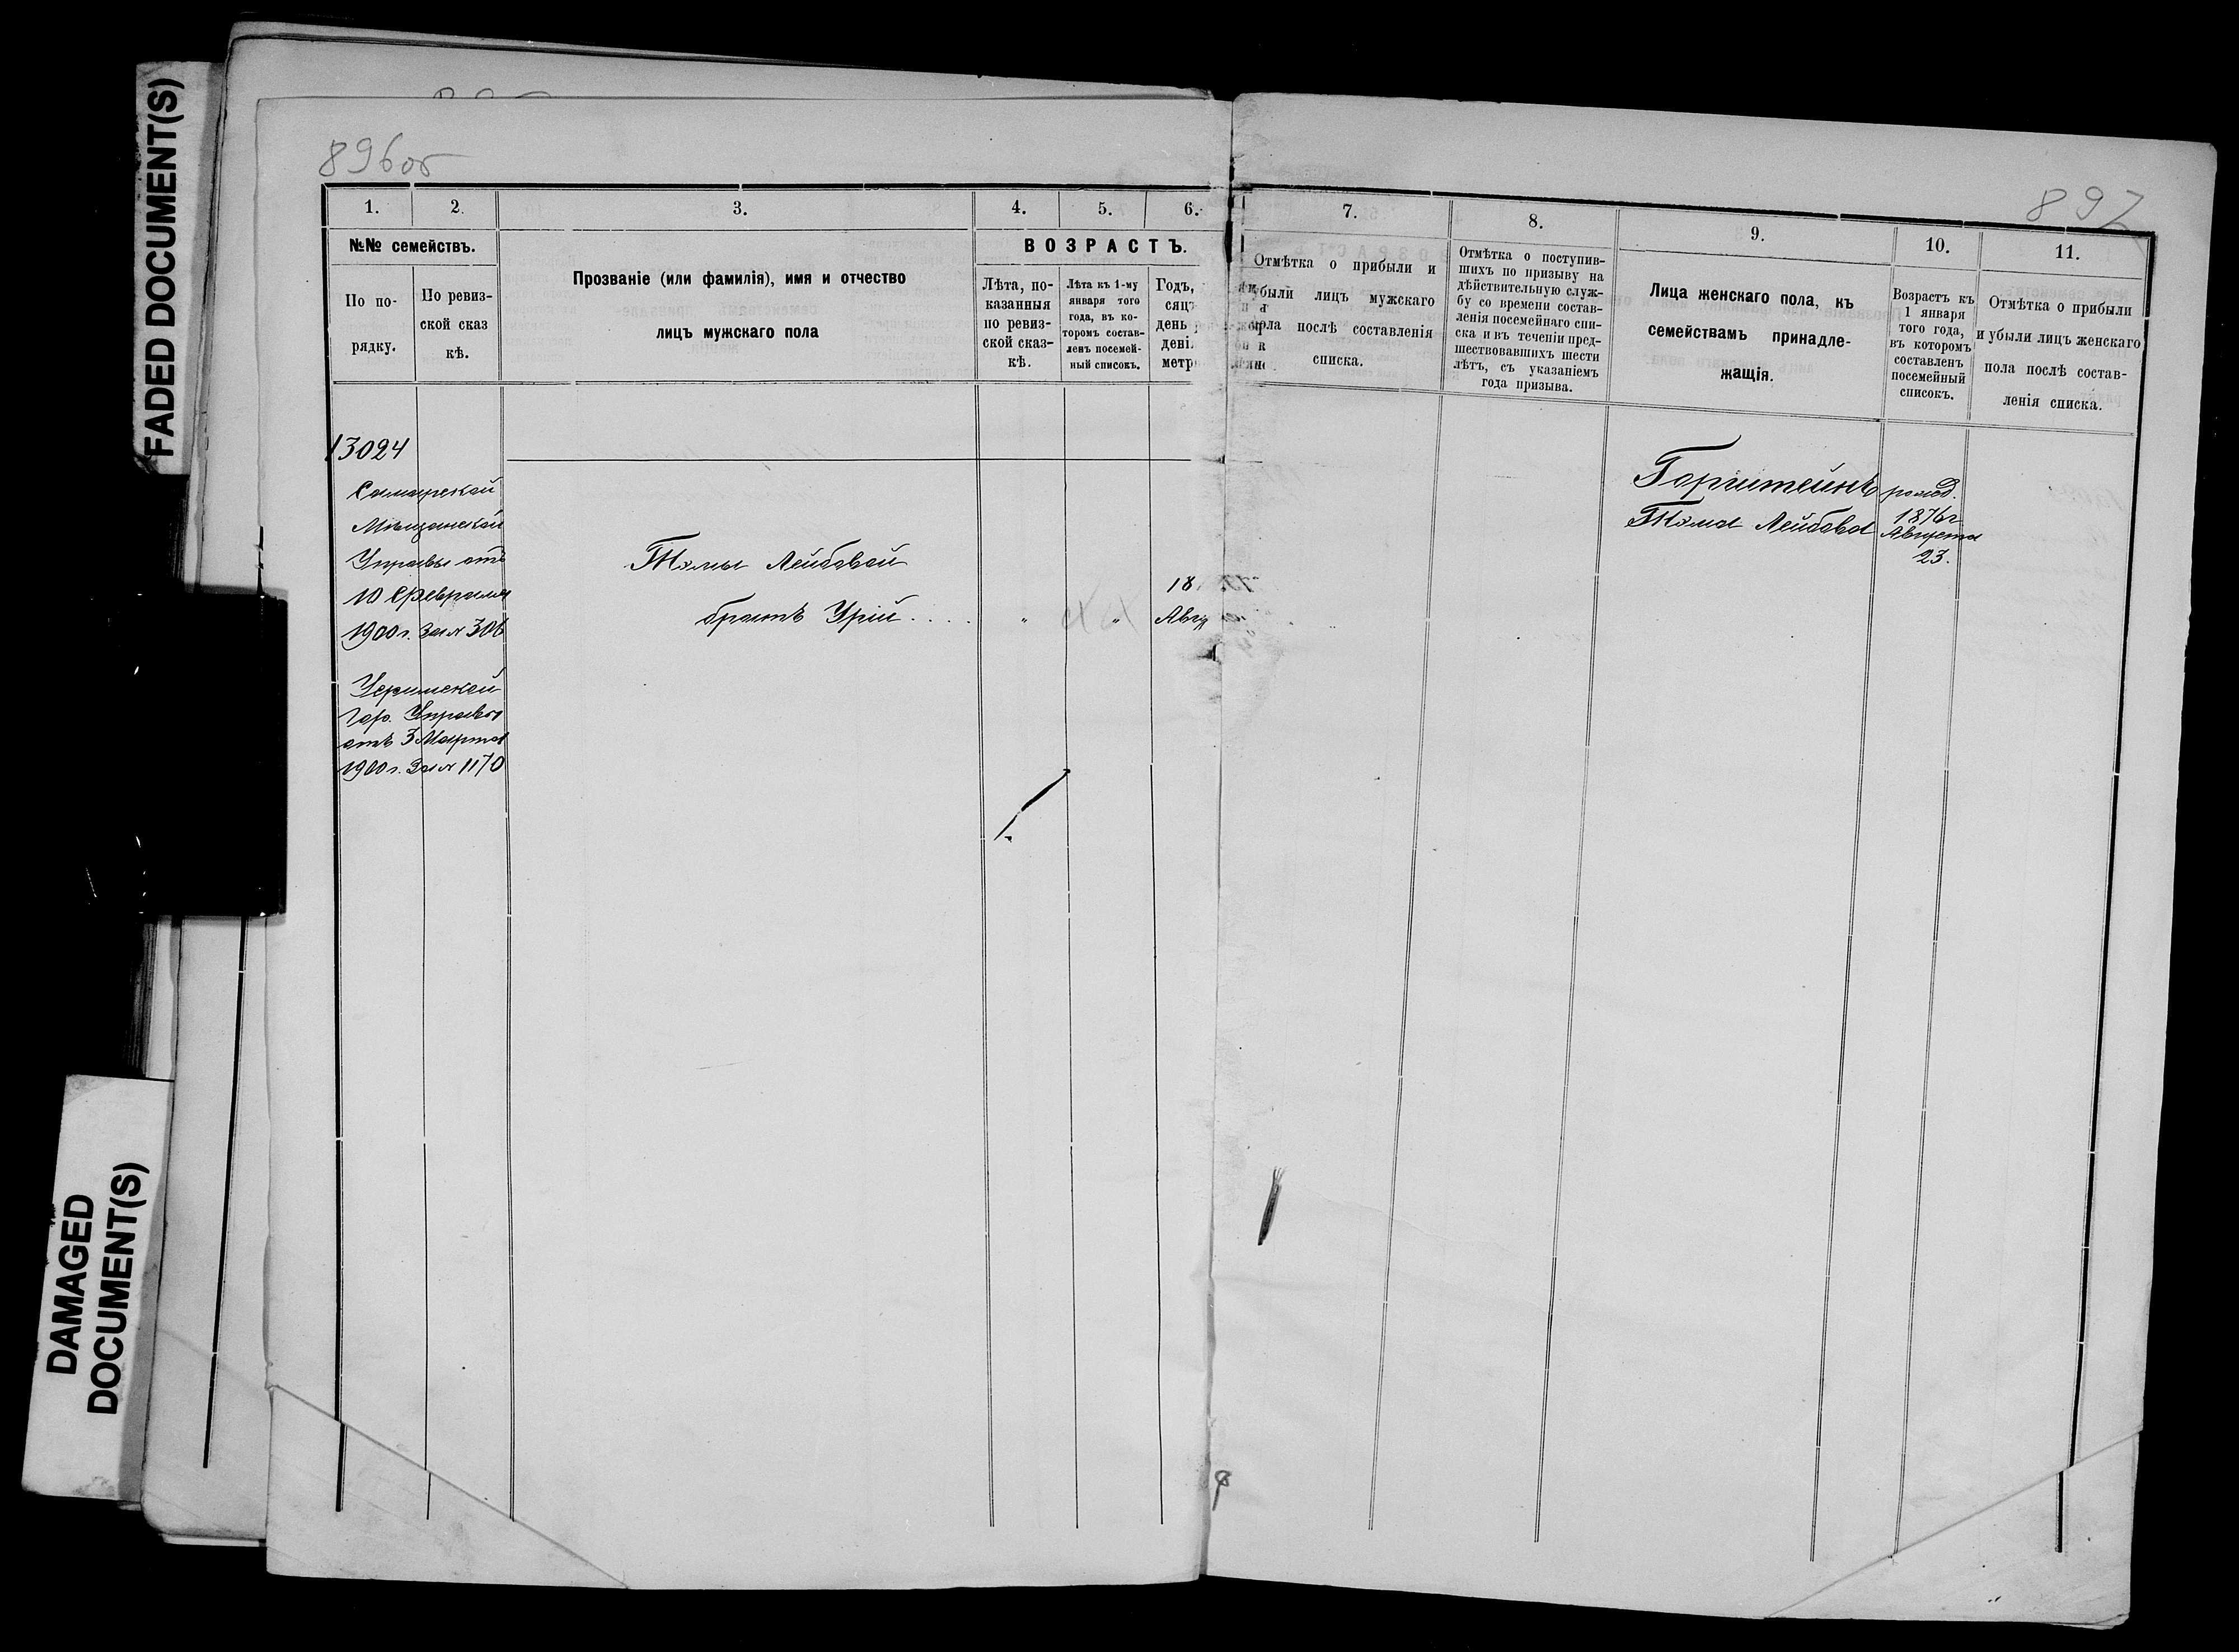 FADED DOCUMENT(S)
DAMAGED
DOCUMENT(S)
896об
1.
2.
3.
4.
5.
6.
№№ семействъ.
По по-
рядку.
По ревиз-
ской сказ
кѣ.
Прозваніе (или фамилія), имя и отчество
лицъ мужскаго пола
ВОЗРАСТЪ.
Лѣта, по-
казанныя
по ревиз-
ской сказ-
кѣ.
Лѣта къ 1-му
января того
года, въ ко-
торомъ состав-
ленъ посемей-
ный списокъ.
Годъ,
сяц
день
дені
метр
13024
Самарской
Мѣщанской
Управы отъ
10 Февраля
1900 г. За № 306
Уфимской
Гор. Управы
отъ 3 Марта
1900 г. За № 1170
Лейбовой
братъ Урій . . . .
18
Авгу
897
7.
8.
9.
10.
11.
Отмѣтка о прибыли и
убыли лицъ мужскаго
пола послѣ составленія
списка.
Отмѣтка о поступив-
шихъ по призыву на
дѣйствительную служ-
бу со времени состав-
ленія посемейнаго спи-
ска и въ теченіи пред-
шествовавшихъ шести
лѣтъ, съ указаніемъ
года призыва.
Лица женскаго пола, къ
семействамъ принадле-
жащія.
Возрастъ къ
1 января
того года,
въ которомъ
составленъ
посемейный
списокъ.
Отмѣтка о прибыли
и убыли лицъ женскаго
пола послѣ состав-
ленія списка.
Горштейнъ
Лейбова
1876 г
Августа
23.